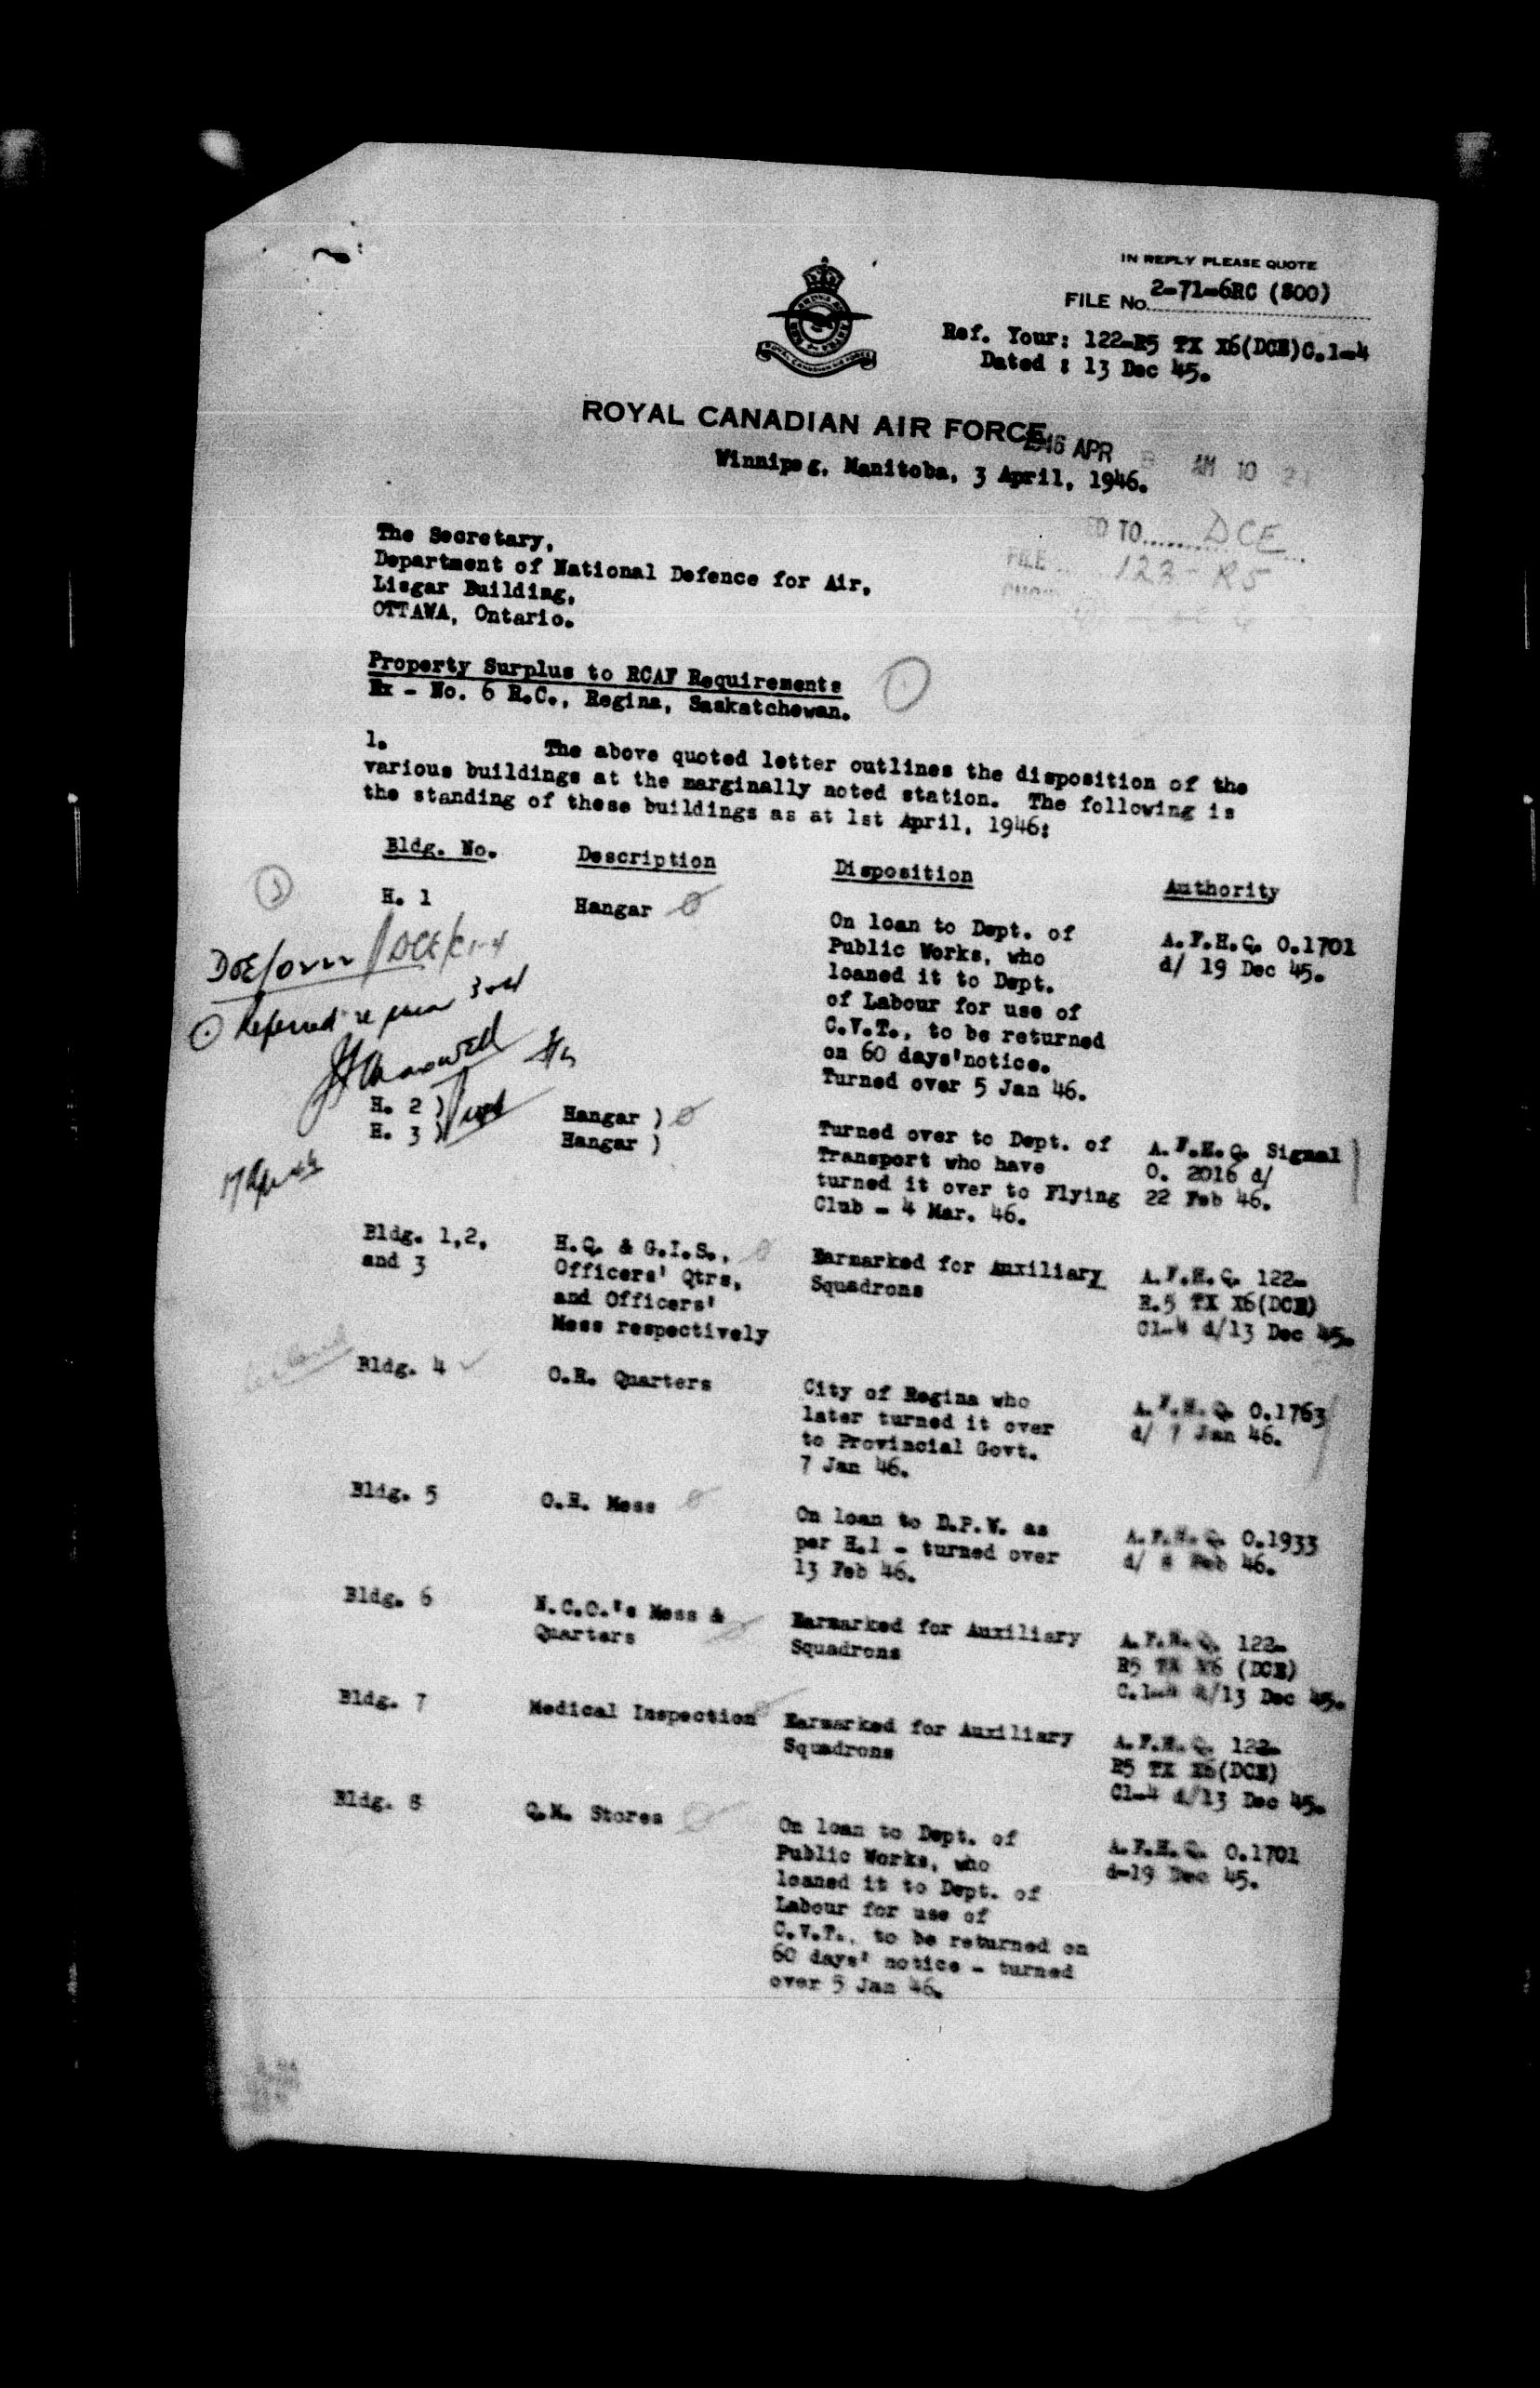 IN REPLY PLEASE QUOTE
FILE No. 2-71-6RC (800)
Ref. Your: 122-R5 TX X6(DCE)C.1-4
Dated : 13 Dec 45.
ROYAL CANADIAN AIR FORCE
1946 APR AM 10
Winnipeg, Manitoba, 3 April, 1946.
TO DCE
FILE 122-R5
The Secretary,
Department of National Defence for Air,
Lisgar Building,
OTTAWA, Ontario.
Property Surplus to RCAF Requirements
Ex - No. 6 R.C., Regina, Saskatchewan.
1. The above quoted letter outlines the disposition of the
various buildings at the marginally noted station. The following is
the standing of these buildings as at 1st April, 1946:
Bldg. No. Description Disposition Authority
H. 1 Hangar On loan to Dept. of A.F.H.Q. O.1701
Public Works, who d/ 19 Dec 45.
loaned it to Dept.
of Labour for use of
C.V.T., to be returned
on 60 days'notice.
Turned over 5 Jan 46.
DCE/C1-4
Referred
H. 2 ) Hangar ) Turned over to Dept. of A.F.H.Q. Signal
H. 3 ) Hangar ) Transport who have O. 2016 d/
turned it over to Flying 22 Feb 46.
Club - 4 Mar. 46.
Bldg. 1,2, H.Q. & G.I.S., Earmarked for Auxiliary A.F.H.Q. 122-
and 3 Officers' Qtrs, Squadrons R.5 TX X6(DCE)
and Officers' C1-4 d/13 Dec 45.
Mess respectively
Bldg. 4 O.R. Quarters City of Regina who A.F.H.Q. O.1763
later turned it over d/ 7 Jan 46.
to Provincial Govt.
7 Jan 46.
Bldg. 5 O.R. Mess On loan to D.P.W. as A.F.H.Q. O.1933
per H.1 - turned over d/ 8 Feb 46.
13 Feb 46.
Bldg. 6 N.C.O.'s Mess & Earmarked for Auxiliary A.F.H.Q. 122-
Quarters Squadrons R5 TX X6 (DCE)
C.1-4 d/13 Dec 45.
Bldg. 7 Medical Inspection Earmarked for Auxiliary A.F.H.Q. 122-
Squadrons R5 TX X6(DCE)
C1-4 d/13 Dec 45.
Bldg. 8 Q.M. Stores On loan to Dept. of A.F.H.Q. O.1701
Public Works, who d-19 Dec 45.
loaned it to Dept. of
Labour for use of
C.V.T., to be returned on
60 days' notice - turned
over 5 Jan 46.